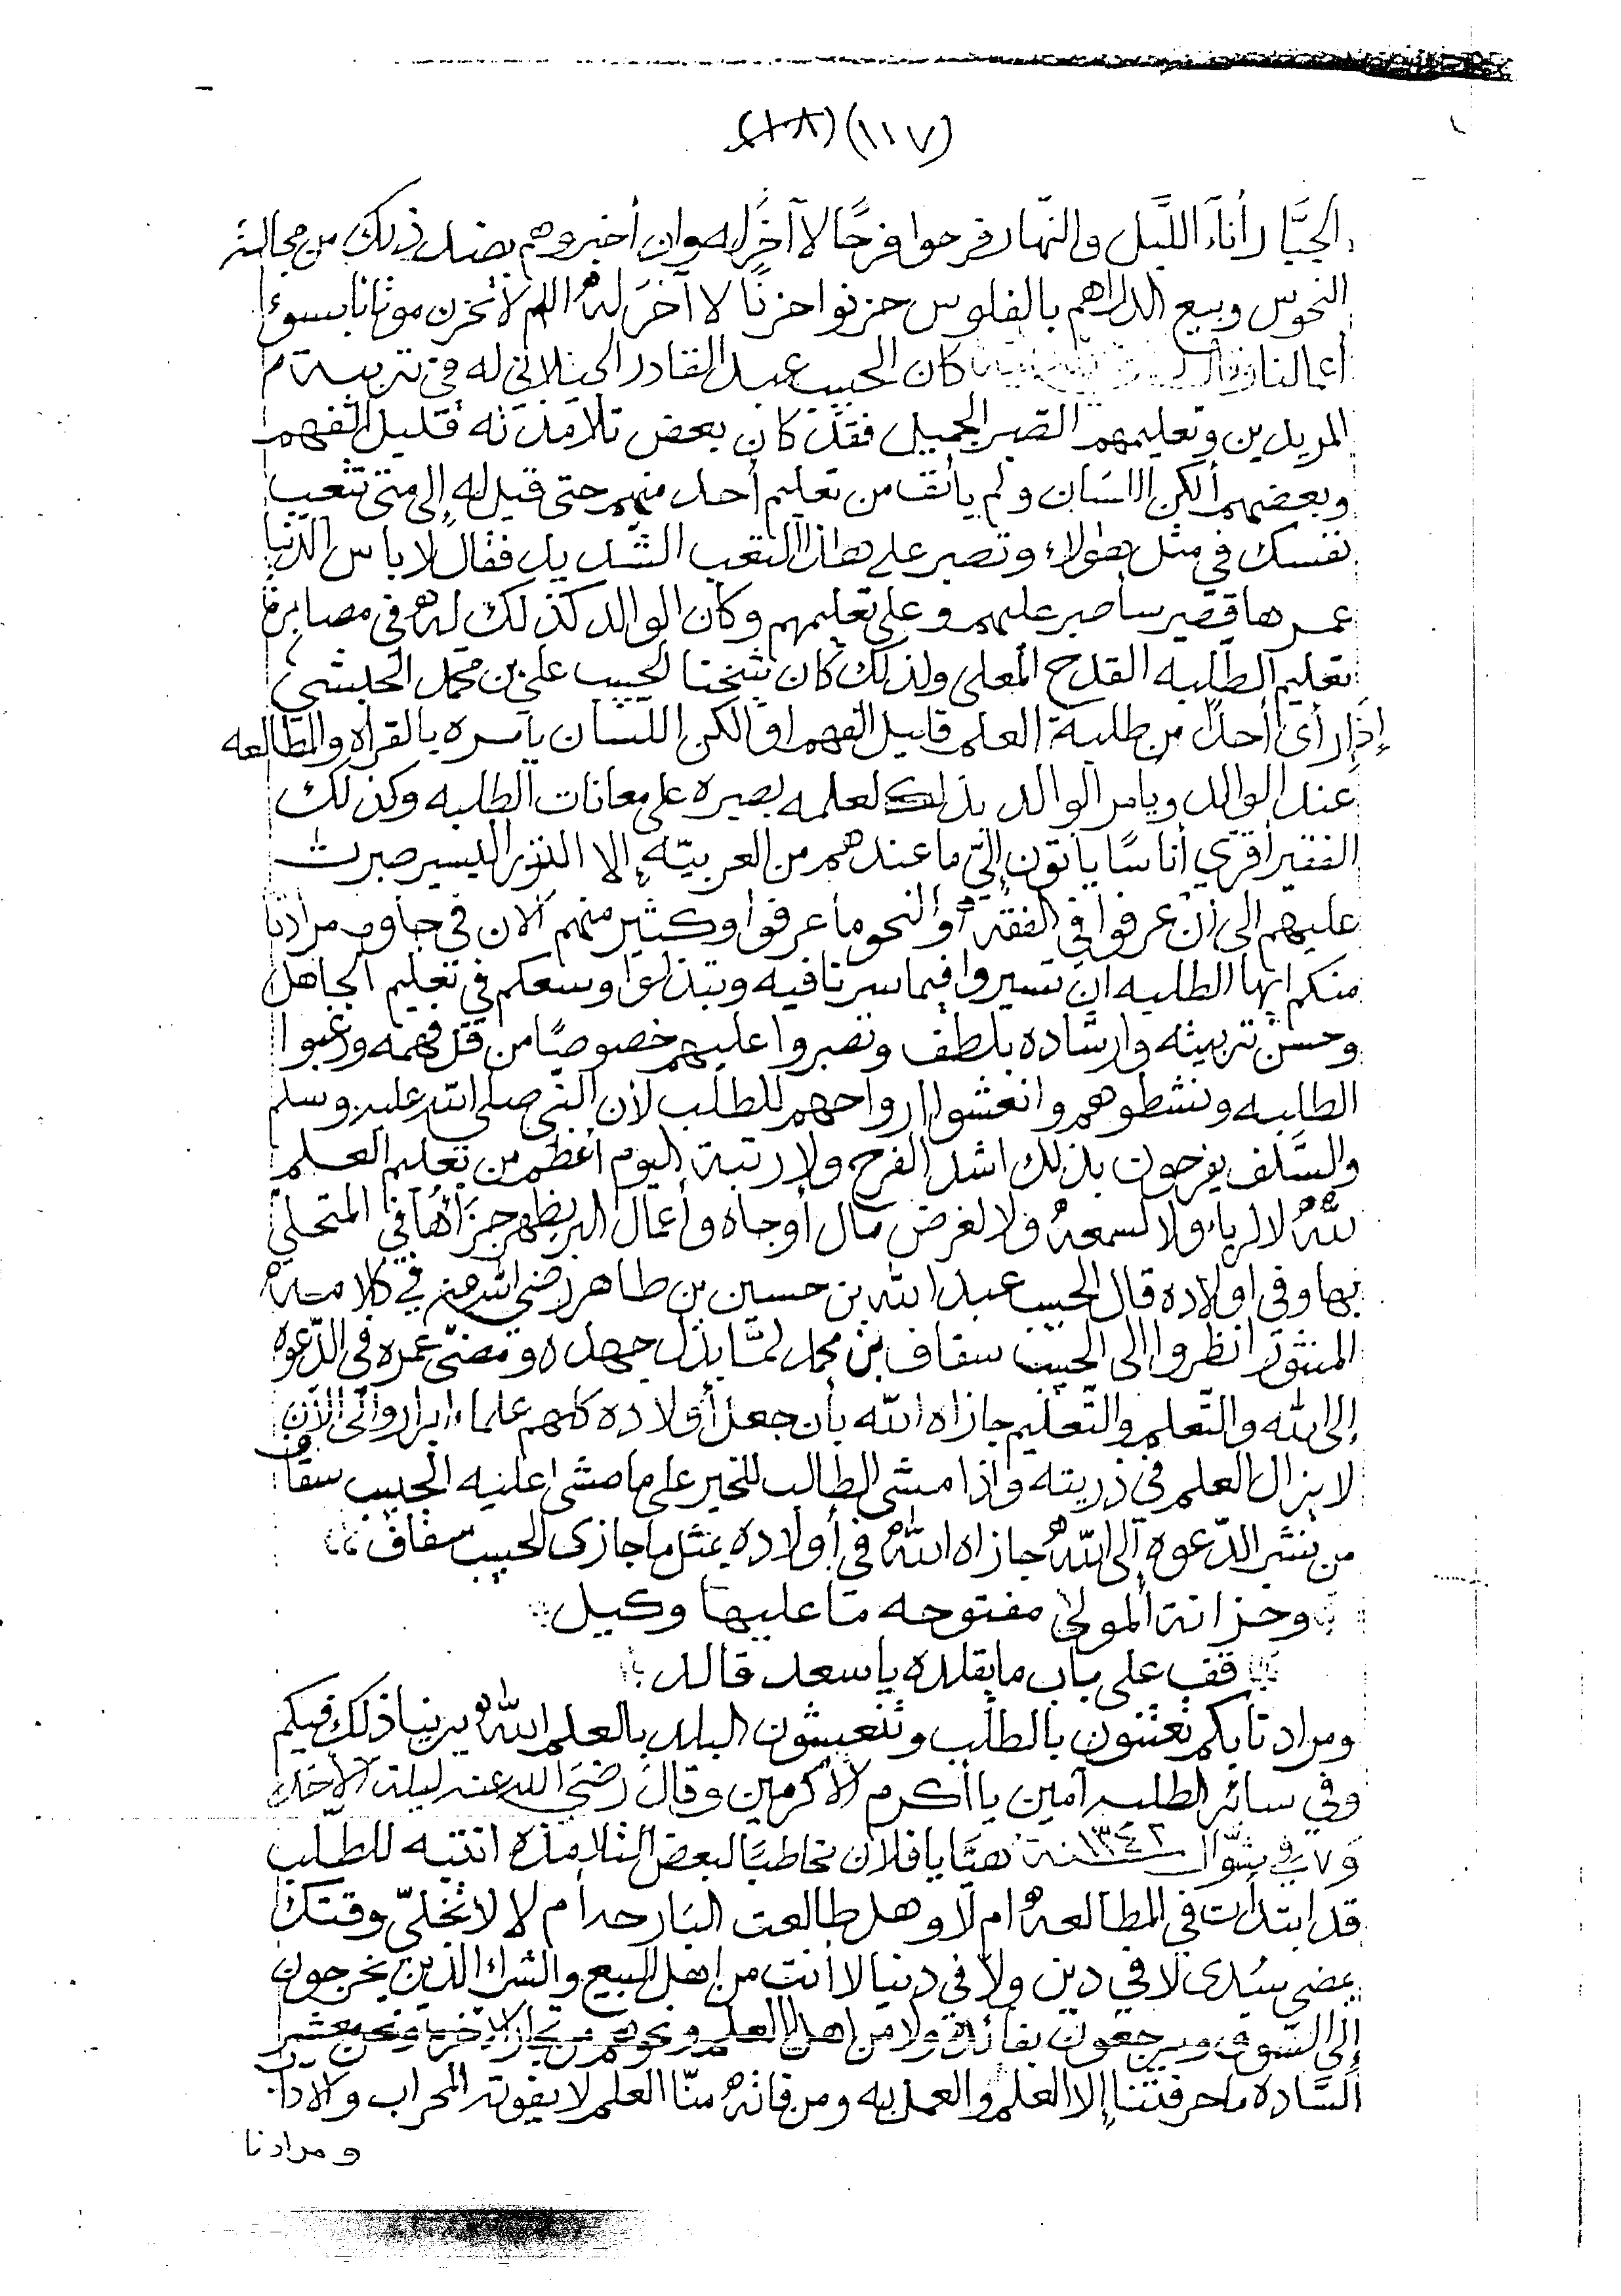 (١١٧) (١٠٨)
الجبَّار أناءَ اللَّيل والنّهار فرحوا فرحًا لا آخرَ له وان أخبروهم بضد ذلك من مجالسة
النحوس وبيع الدراهم بالفلوس حزنوا حزنًا لا آخرَ له اللهم لا تخزن موتانا بسوء
أعمالنا كان الحبيب عبد القادر الجيلاني له في تربية
المريدين وتعليمهم الصبر الجميل فقد كان بعض تلامذته قليل الفهم
وبعضهم ألكن اللسان ولم يأنف من تعليم أحد منهم حتى قيل له إلى متى تتعب
نفسك في مثل هؤلاء وتصبر على هذا التعب الشديد فقال لا باس الدّنيا
عمرها قصير سأصبر عليهم وعلى تعليمهم وكان الوالد كذلك له في مصابرة
تعليم الطّلبه القدح المعلى ولذلك كان شيخنا الحبيب علي بن محمد الحبشي
إذا رأى أحداً من طلبة العلم قليل الفهم او الكن اللسان يأمره بالقرأه والمطالعه
عند الوالد ويامر الوالد بذلك لعلمه بصبره على معانات الطلبه وكذلك
الفقير أقري أناسًا يأتون إليّ ما عندهم من العربيّة إلا النزر اليسير صبرت
عليهم الى أن عرفوا في الفقه أو النحو ما عرفوا وكثير منهم الآن في جاوه مرادنا
منكم ايها الطلبه ان تسيروا فيما سرنا فيه وتبذلوا وسعكم في تعليم الجاهل
وحسن تربيته وارشاده بلطف وتصبروا عليهم خصوصًا من قل فهمه ورغبوا
الطلبه ونشطوهم وانعشوا ارواحهم للطلب لأن النبي صلى الله عليه وسلم
والسَّلف يفرحون بذلك اشد الفرح ولا رتبة اليوم أعظم من تعليم العلم
لله لا لرياء ولا لسمعه ولا لغرض مال أو جاه وأعمال البر يظهر جزأها في المتحلي
بها وفي اولاده قال الحبيب عبد الله بن حسين بن طاهر رضي الله عنه في كلامه
المنثور انظروا الى الحبيب سقاف بن محمد لمّا بذل جهده ومضّى عمره في الدّعوه
إلى الله والتّعلم والتّعليم جازاه الله بأن جعل أولاده كلهم علماء ابرار والى الآن
لا يزال العلم في ذريته واذا مشى الطالب للخير على ما مشى عليه الحبيب سقاف
من نشر الدّعوه الى الله جازاه الله في أولاده بمثل ما جازى الحبيب سقاف
وخزانة المولى مفتوحه ما عليها وكيل
قف على باب مايقلده يا سعد قالد
ومرادنا بكم تعتنون بالطلب وتنعيشون البلاد بالعلم الله يرينا ذلك فيكم
وفي سائر الطلبه آمين يا أكرم الأكرمين وقال رضيَ الله عنه ليلة الأحد
و٧ في شوّال سنة ١٣٤٢ هيّا يا فلان مخاطبًا لبعض التلامذه انتبه للطّلب
قد ابتدأت في المطالعه ام لا وهل طالعت البارحه أم لا لا تخلّي وقتك
يمضي سُدى لا في دين ولا في دنيا لا أنت من اهل البيع والشراء الذين يخرجون
إلى السّوق ويرجعون بفائدة ولا من اهل العلم ونحوهم من تجار الآخره ونحن معشر
السَّاده ما حرفتنا إلا العلم والعمل به ومن فاته منّا العلم لا يفوته المحراب والاداب
ومرادنا